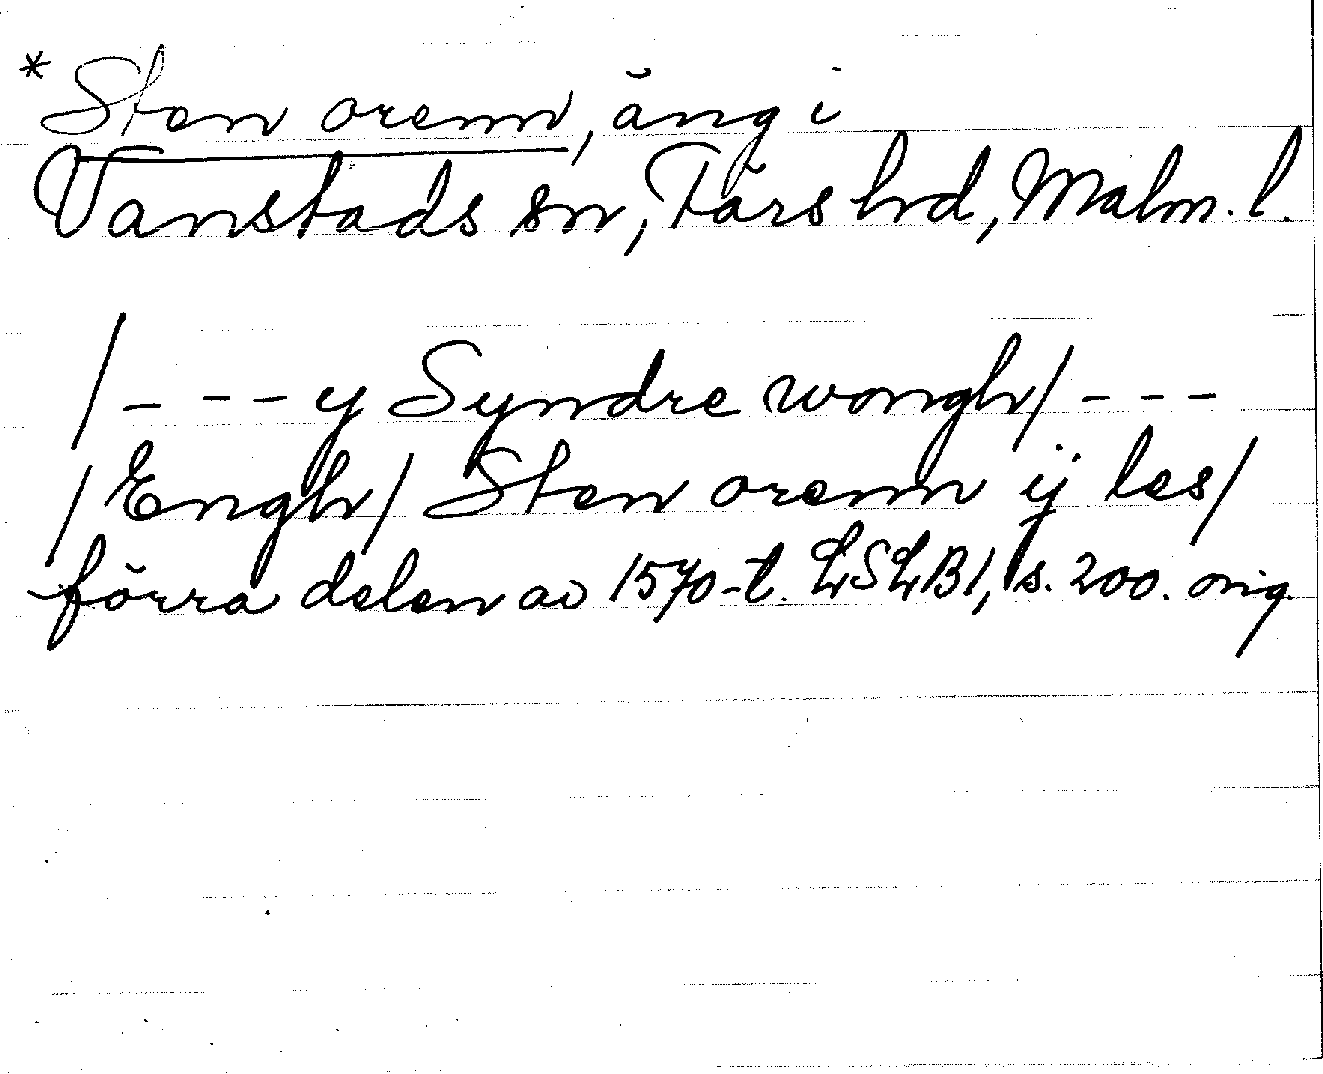 *Sten orenn, äng i
Vanstads sn, Färs hrd, Malm. l.
/---y Syndre wongh/---
/Engh/ Sten orenn ij les/
förra delen av 1570-t. LSLB1, s. 200. orig.